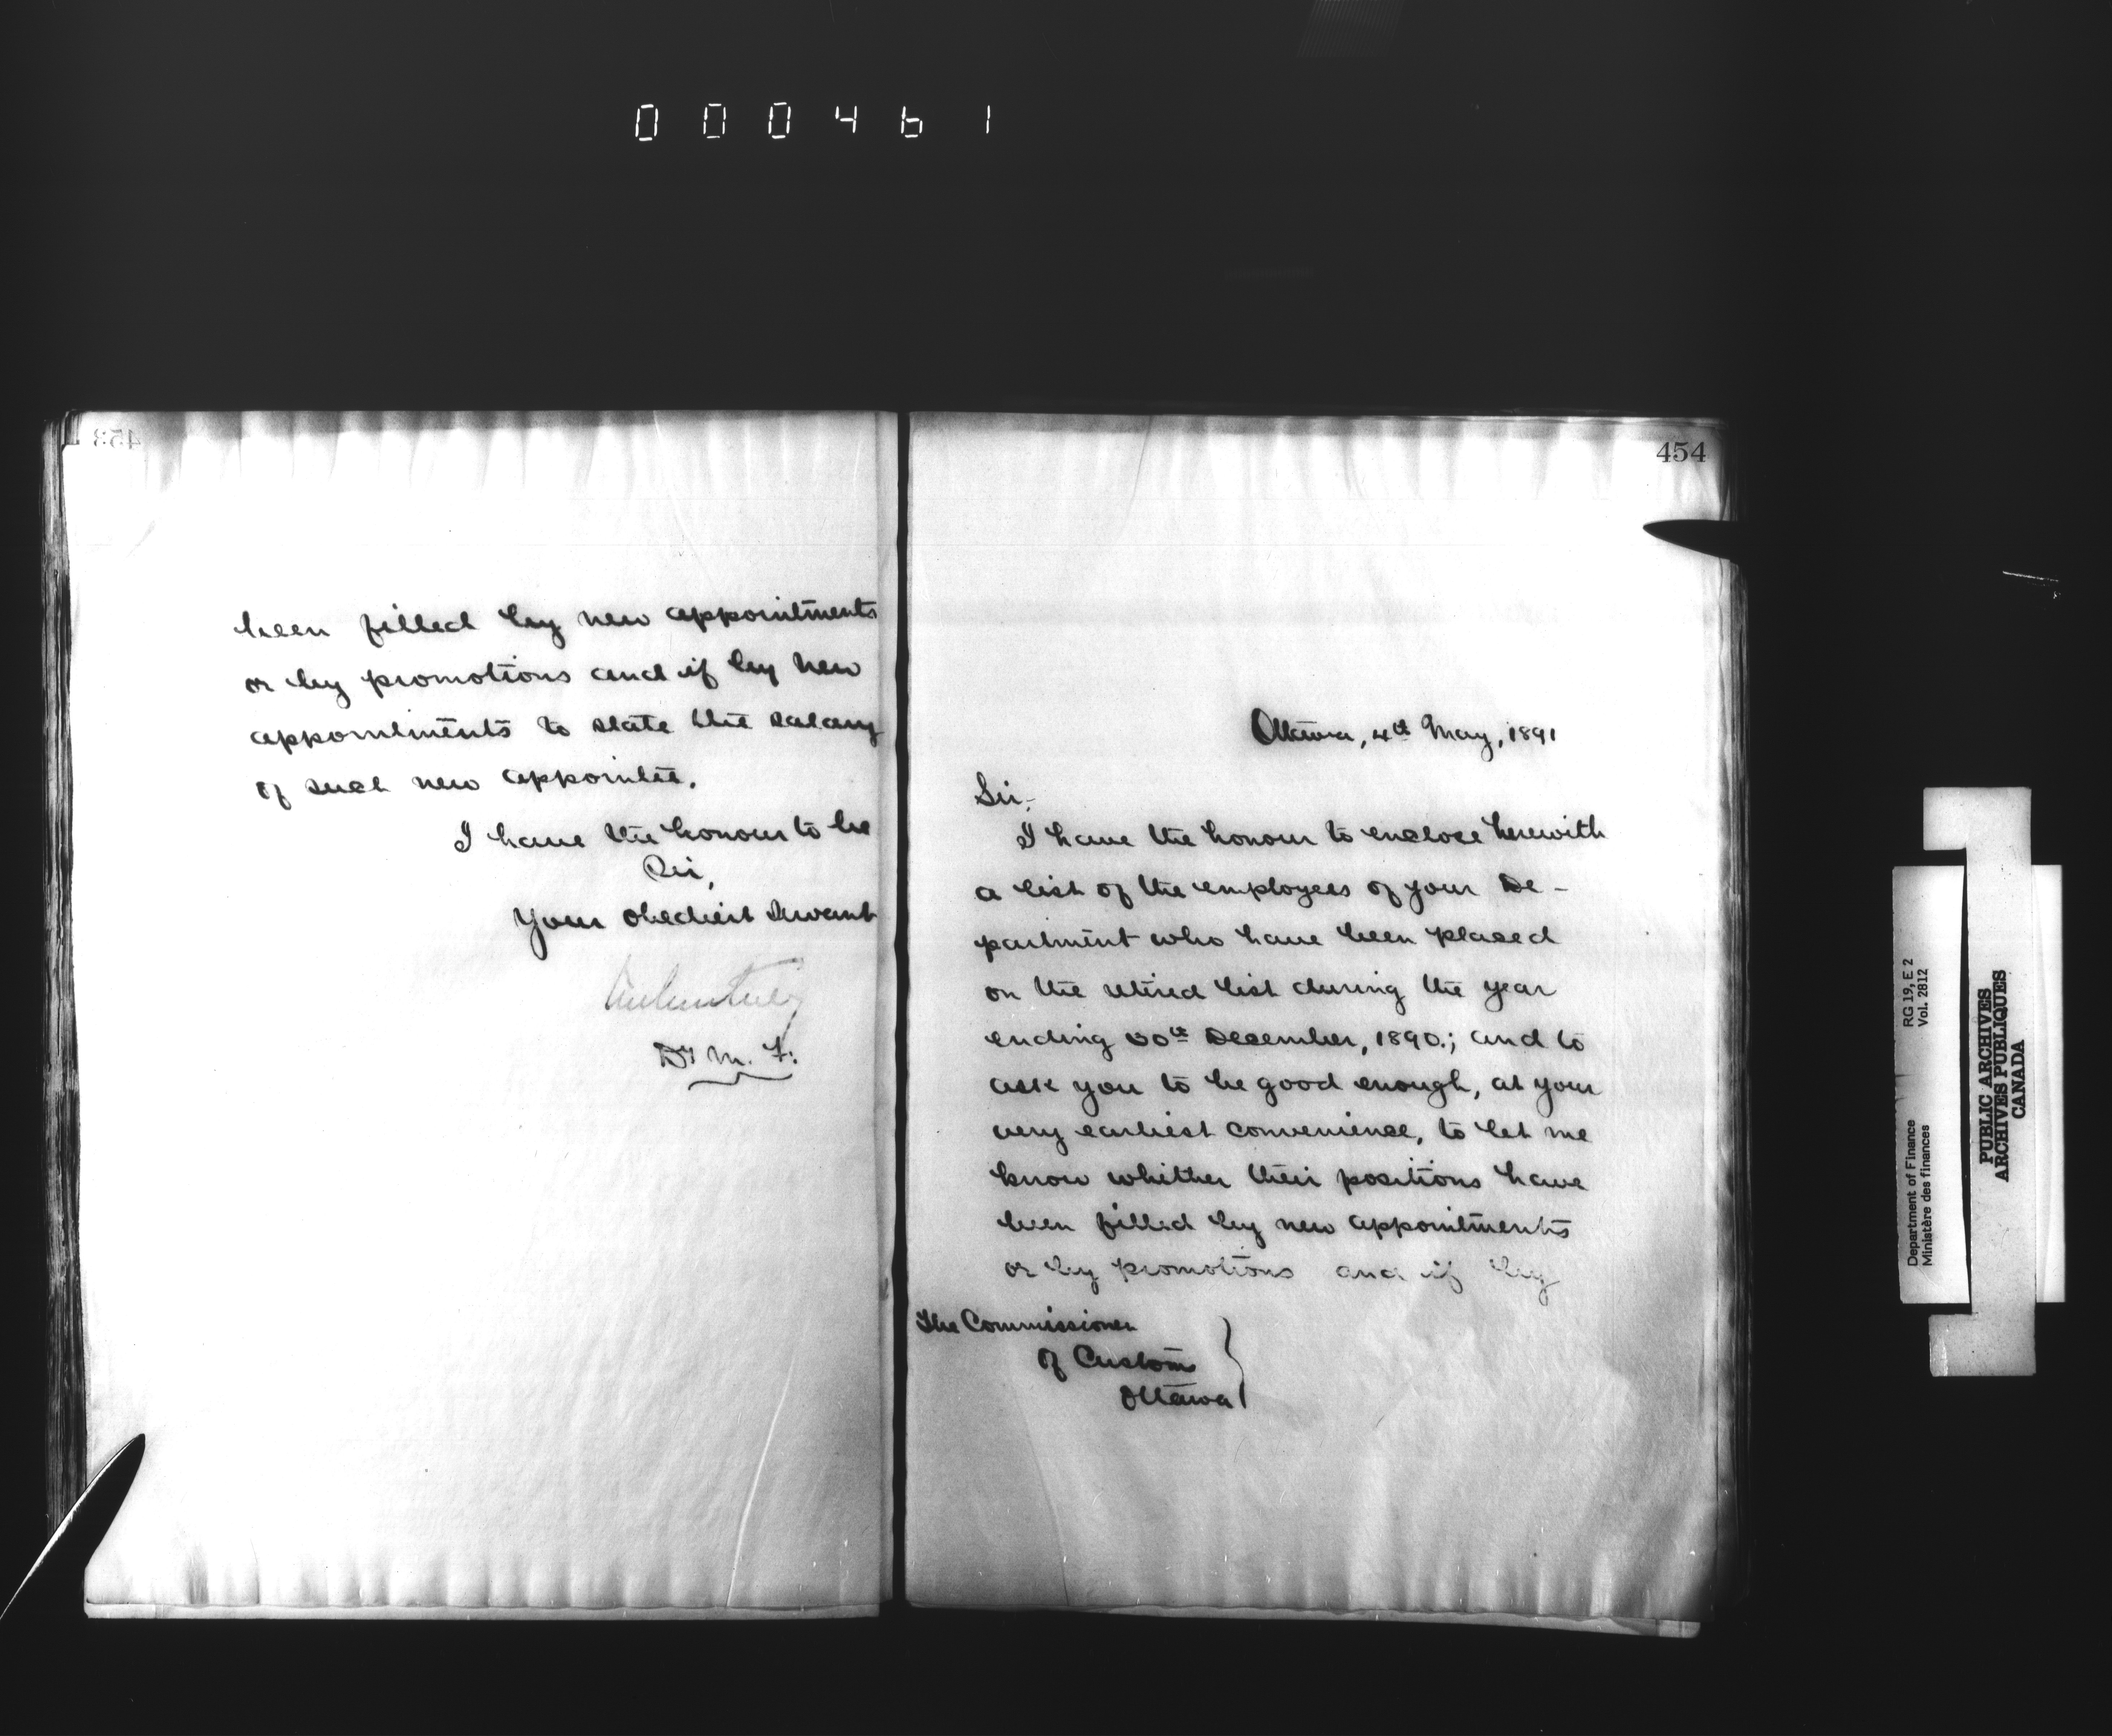 000461
453
been filled by new appointments
or by promotions and if by new
appointments to state the salary
of such new appointee.
I have the honour to be
Sir,
Your obedient servant
D. M. F.
454
Ottawa, 4th May, 1891
Sir,
I have the honour to enclose herewith
a list of the employees of your De-
partment who have been placed
on the retired list during the year
ending 30th December, 1890.; and to
ask you to be good enough, at your
very earliest convenience, to let me
know whether their positions have
been filled by new appointments
or by promotions and if by
The Commissioner
of Customs
Ottawa
RG 19, E 2
Vol. 2812
Department of Finance
Ministère des finances
PUBLIC ARCHIVES
ARCHIVES PUBLIQUES
CANADA